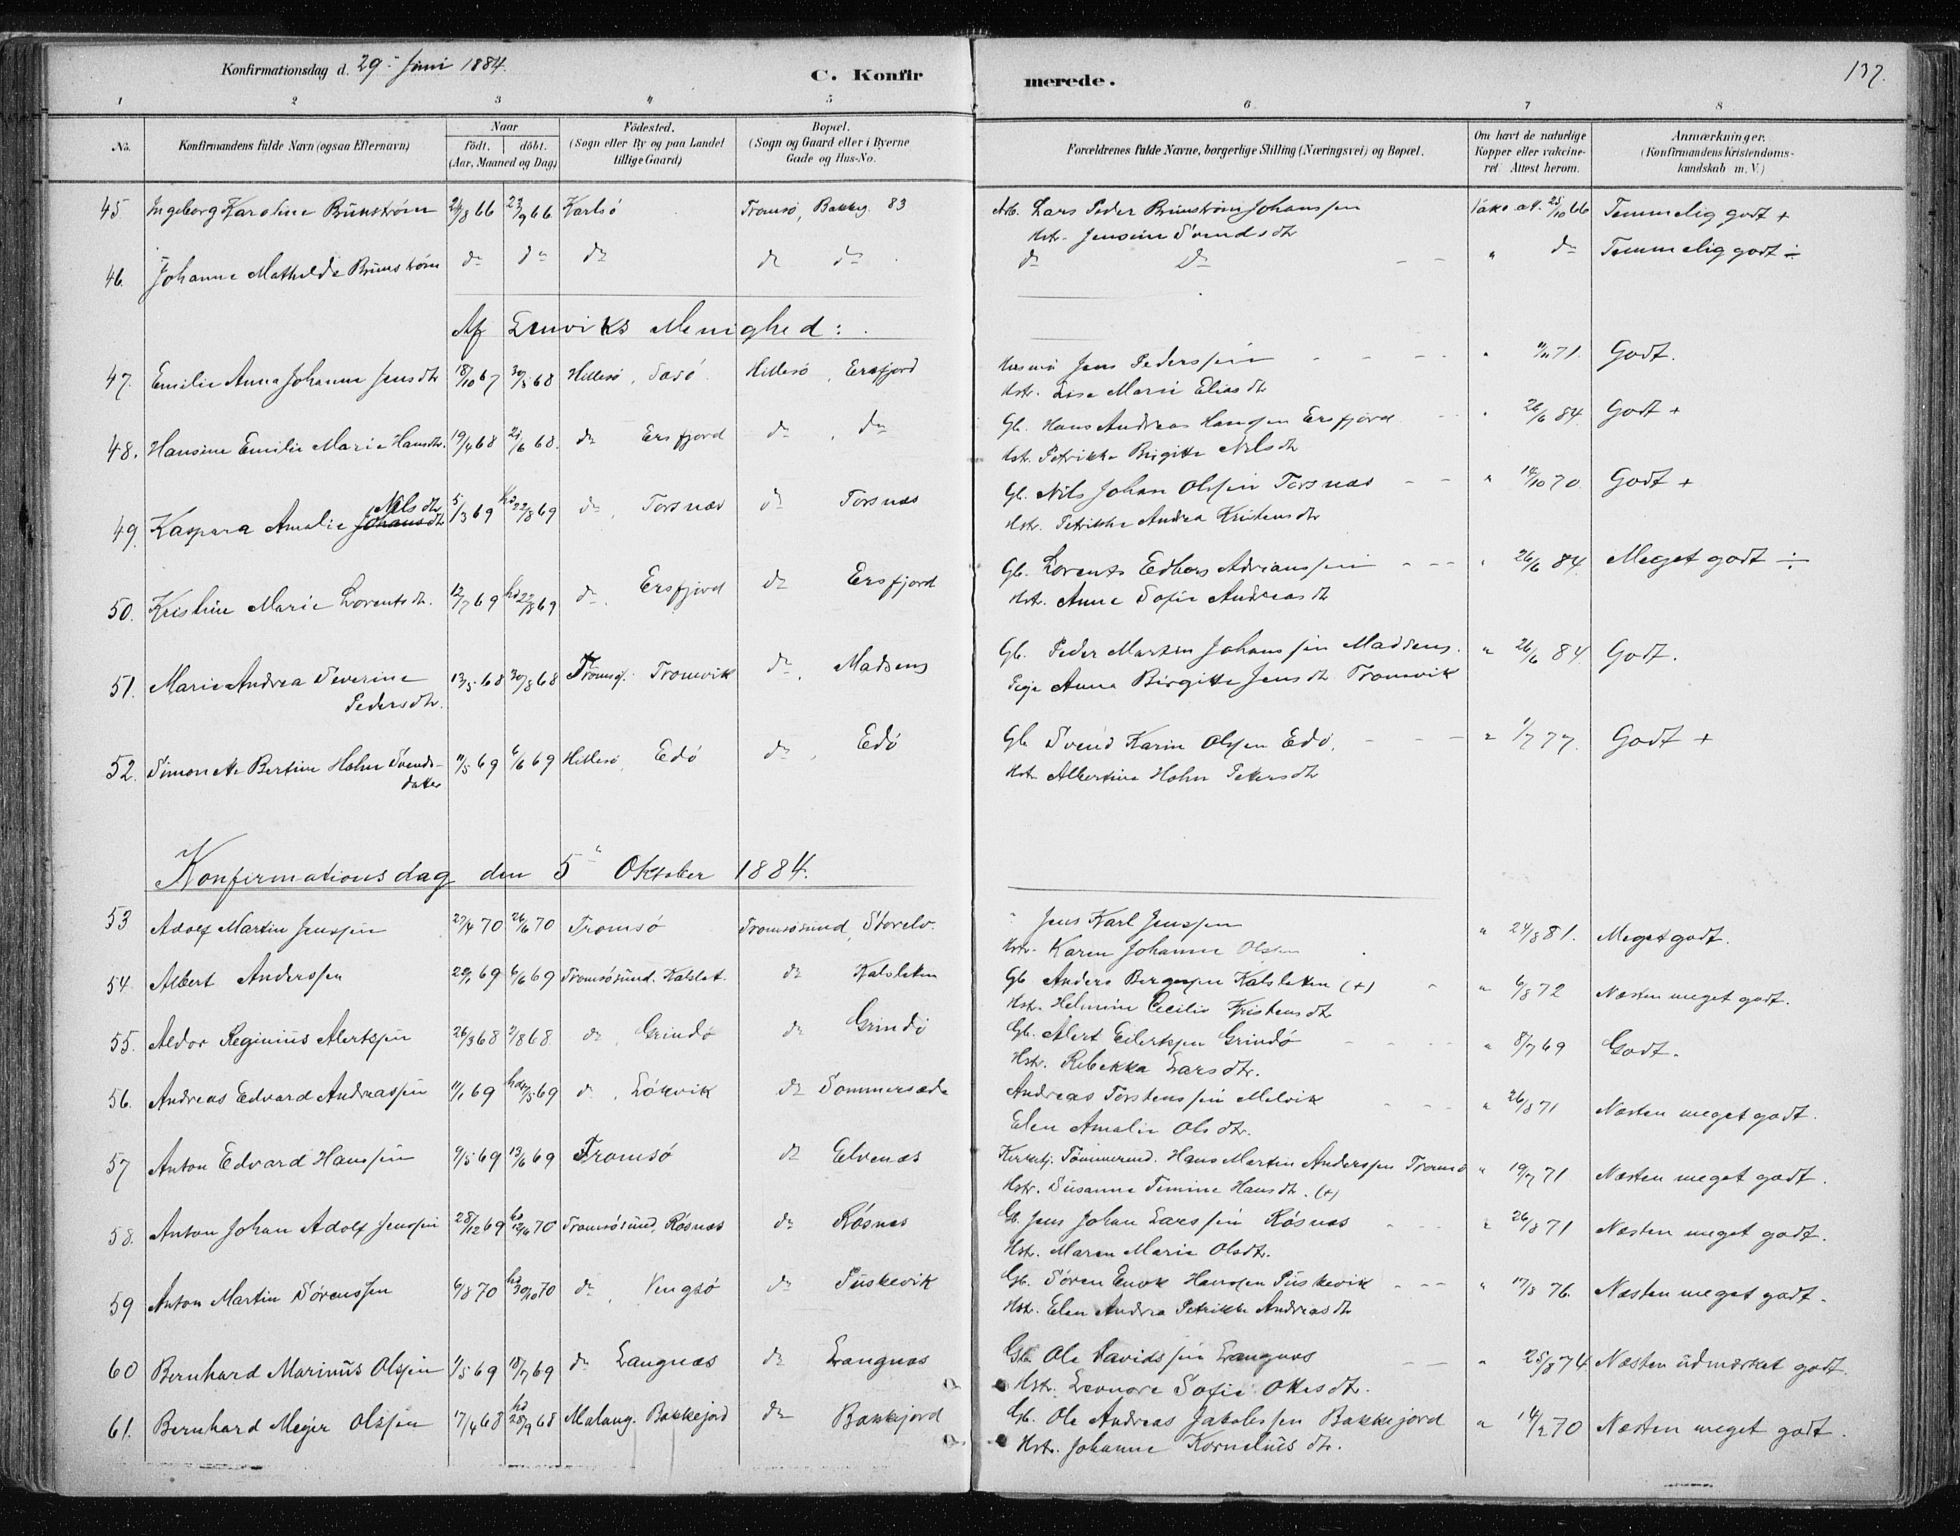 Konfirmationsdag d. 29 Juni 1884.
C. Konfirmerede.
137.
1 2 3 4 5 6 7 8
No. Konfirmandens fulde Navn (ogsaa Efternavn) Naar født. døbt. (Aar, Maaned og Dag) Fødested. (Sogn eller By og paa Landet tillige Gaard) Bopæl. (Sogn og Gaard eller i Byerne Gade og Hus-No. Forældrenes fulde Navne, borgerlige Stilling (Næringsvei) og Bopæl. Om havt de naturlige Kopper eller vakcineret. Attest herom. Anmærkninger. (Konfirmandens Kristendomskundskab m. V.)
45 Ingeborg Karoline Brunstrøm 24/8 66 23/9 66 Karlsø Tromsø, Bakkeg. 83 Arb. Lars Peder Brunstrøm Johanssen Vakc. at. 25/10 66 Temmelig godt +
Hstr. Jensine Svendsdtr
46. Johanne Mathilde Brunstrøm do do do do do do Do - - " do Temmelig godt ÷
Af Lenviks Menighed:
47. Emilie Anna Johanne Jensdtr 18/10 67 30/5 68 Hillesø, Sasø. Hillesø, Ersfjord Husmd Jens Pederssen - - - " 71. Godt.
Hstr. Lise Marie Eliasdtr
48. Hansine Emilie Marie Hansdtr. 19/4 68 21/6 68. do Ersfjord do, do Gb. Hans Andreas Hansen Ersfjord - - " 26/6 84. Godt +
Hstr. Petrikke Birgitte Nilsdtr
49. Kaspara Amalie Johansdtr Nilsdtr 5/3 69 hd 22/8 69 do, Torsnæs do Torsnæs Gb. Nils Johan Olssen Torsnæs - - " 14/10 70 Godt +
Hstr. Petrikke Andrea Kristensdtr
50. Kristine Marie Lorentsdtr. 12/7 69 hd 22/8 69 do, Ersfjord do Ersfjord Gb. Lorents Edvars Adrianssen - - - " 26/6 84. Meget godt ÷
Hstr. Anne Sofie Andreasdtr
51. Marie Andrea Severine 13/5 68 30/8 68 Tromsø. Tromvik do, Madsens Gb. Peder Martin Johanssen Madsens. " 26/6 84 Godt.
Pedersdtr. Pige Anna Birgitte Jensdtr Tromvik
52. Simonette Bertine Hohn Svends- 11/5 69 6/6 69 Hillesø, Edø do, Edø Gb. Svend Karin Olssen Edø. - - - " 1/7 77. Godt +
datter Hstr Albertine Hohn Petersdtr
Konfirmationsdag den 5te Oktober 1884.
53 Adolf Martin Jenssen 27/4 70 26/6 70 Tromsø Tromsøsund, Storelv. " Jens Karl Jenssen " 24/8 81. Meget godt.
Hstr. Karen Johanne Olsen
54. Albert Anderssen 29/1 69 6/6 69 Tromsøsund. Kalslet. do Kalsletten Gb Anders Bergessen Kalsletten (+) " " 6/8 72 Næsten meget godt.
Hstr. Helmine Cecilie Kristensdtr
55. Aldor Reginius Alertssen 26/3 68 2/8 68 do, Grindø do Grindø Gb. Alert Eilertssen Grindø - - - " 8/7 69 Godt.
Hstr. Rebekka Larsdtr.
56. Andreas Edvard Andreassen 11/1 69 hd 17/5 69 do, Løkvik do Sommersæde Andreas Torstenssen Melvik - - - " 26/8 71 Næsten meget godt.
Elen Amalie Olsdtr.
57 Anton Edvard Hanssen 9/5 69 13/6 69 Tromsø do Elvenæs Kirketj. Tømmermd. Hans Martin Anderssen Tromsø " 19/7 71 Næsten meget godt.
Hstr. Susanne Temine Hansdtr. (+)
58. Anton Johan Adolf Jenssen 28/12 69 hd 12/4 70 Tromsøsund, Røsnæs do Røsnæs Gb. Jens Johan Larssen Røsnæs - - - " 26/8 71 Næsten meget godt.
Hstr. Maren Marie Olsdtr.
59 Anton Martin Sørenssen 6/8 70 hd 30/10 70 do, Vengsø do Tuskevik Gb. Søren Enok Hanssen Tuskevik - - - " 17/8 76. Næsten meget godt.
Hstr. Elen Andrea Petrikke Andreasdtr
60 Bernhard Marinus Olssen 1/5 69 18/7 69 do Langnæs do Langnæs Gb. Ole Davidssen Langnæs - - " 25/8 74. Næsten udmærket godt.
Hstr. Leonore Sofie Ottesdtr.
61. Bernhard Meyer Olssen 17/4 68 hd 28/9 68 Malang. Bakkejord do Bakkjord Gb. Ole Andreas Jakobssen Bakkejord " 14/2 70 Næsten meget godt.
Hstr. Johanne Korneliusdtr.